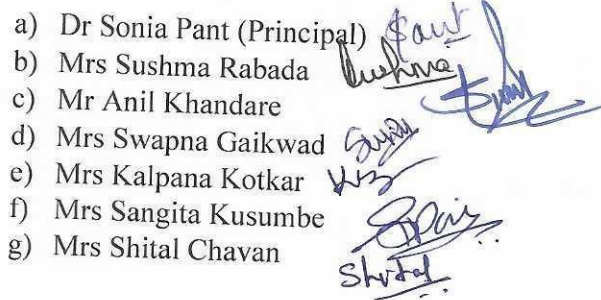 a) Dr Sonia Pant (Principal) Pant
b) Mrs Sushma Rabada Sushma
c) Mr Anil Khandare
d) Mrs Swapna Gaikwad
e) Mrs Kalpana Kotkar
f) Mrs Sangita Kusumbe
g) Mrs Shital Chavan Shital